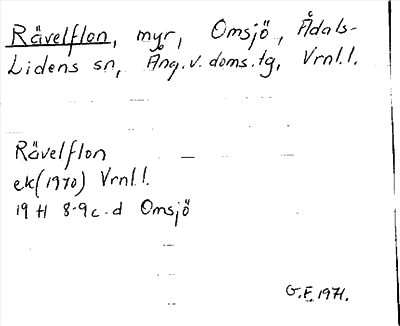 Rävelflon, myr, Omsjö, Ådals-
Lidens sn, Ång. v. doms. tg, Vrnl.l.
Rävelflon
ek (1970) Vrnl.l.
19 H 8-9 c-d Omsjö
G.F. 1971.